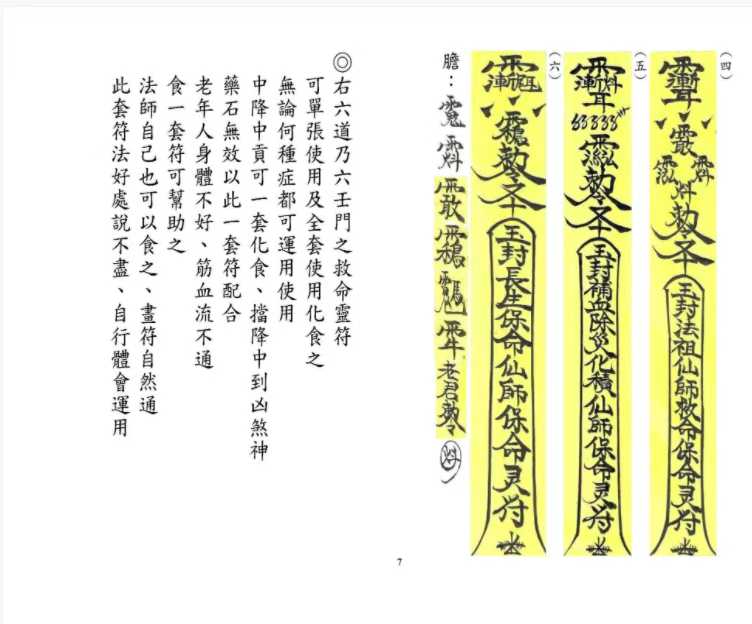 (四)
勅令
玉封法祖仙師救命保命灵符
(五)
勅令
玉封補血除災化積仙師保命灵符
(六)
勅令
玉封長生保命仙師保命灵符
膽：
老君勅令
◎右六道乃六壬門之救命靈符
可單張使用及全套使用化食之
無論何種症都可運用使用
中降中貢可一套化食、擋降中到凶煞神
藥石無效以此一套符配合
老年人身體不好、筋血流不通
食一套符可幫助之
法師自己也可以食之、畫符自然通
此套符法好處說不盡、自行體會運用
7